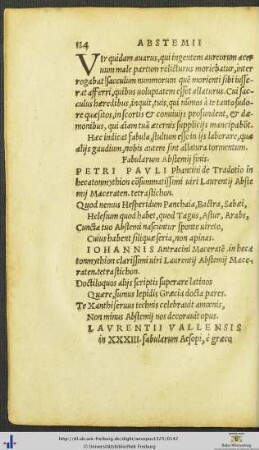 124 ABSTEMII
VIr quidam auarus, qui ingentem aureorum acer
uum male partum relicturus moriebatur, inter
rogabat sacculum nummorum quē morienti sibi iusse-
rat afferri, quibus uoluptatem esset allaturus. Cui sac-
culus hæredibus, inquit, tuis, qui nūmos à te tanto sudo-
re quæsitos, in scortis & conuiuijs profundent, & dæ-
monibus, qui animam tuā æternis supplicijs mancipabūt.
Hæc indicat fabula, stultum esse in ijs laborare, quæ
alijs gaudium, nobis autem sint allatura tormentum.
Fabularum Abstemij finis.
PETRI PAVLI Phantini de Tradotio in
hecatonmythion cōsummatissimi uiri Laurentij Abste
mij Maceraten. tetrastichon.
Quod nemus Hesperidum Panchaia, Bactra, Sabæi,
Helesium quod habet, quod Tagus, Astur, Arabs,
Cuncta tuo Abstemi nascuntur sponte uireto,
Cuius habent siliquæ seria, non apinas.
IOHANNIS Antracini Maceratē. in hecā
tonmythion clarissimi uiri Laurentij Abstemij Mace-
raten. tetrastichon.
Doctiloquos alijs scriptis superare latinos
Quare, sumus lepidis Græcia docta pares.
Te Xanthi seruus technis celebrauit amœnis,
Non minus Abstemij nos decorauit opus.
LAVRENTII VALLENSIS
in XXXIII. fabularum Aesopi, è græco
http://dl.ub.uni-freiburg.de/diglit/aesopus1529/0142
© Universitätsbibliothek Freiburg
Baden-Württemberg